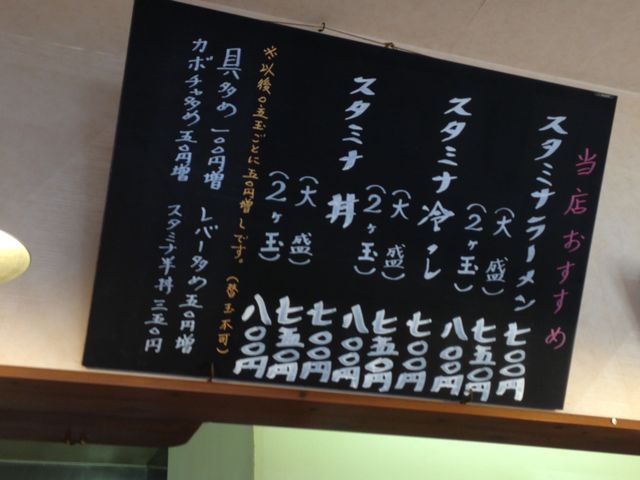 当店おすすめ
スタミナラーメン 七〇〇円
(大盛) 七五〇円
(2ヶ玉) 八〇〇円
スタミナ冷し 七〇〇円
(大盛) 七五〇円
(2ヶ玉) 八〇〇円
スタミナ丼 七〇〇円
(大盛) 七五〇円
(2ヶ玉) 八〇〇円
※以後〇、五玉ごとに五〇円増しです。(替玉不可)
具多め 一〇〇円増 レバー多め 五〇円増
カボチャ多め 五〇円増 スタミナ半丼 三五〇円